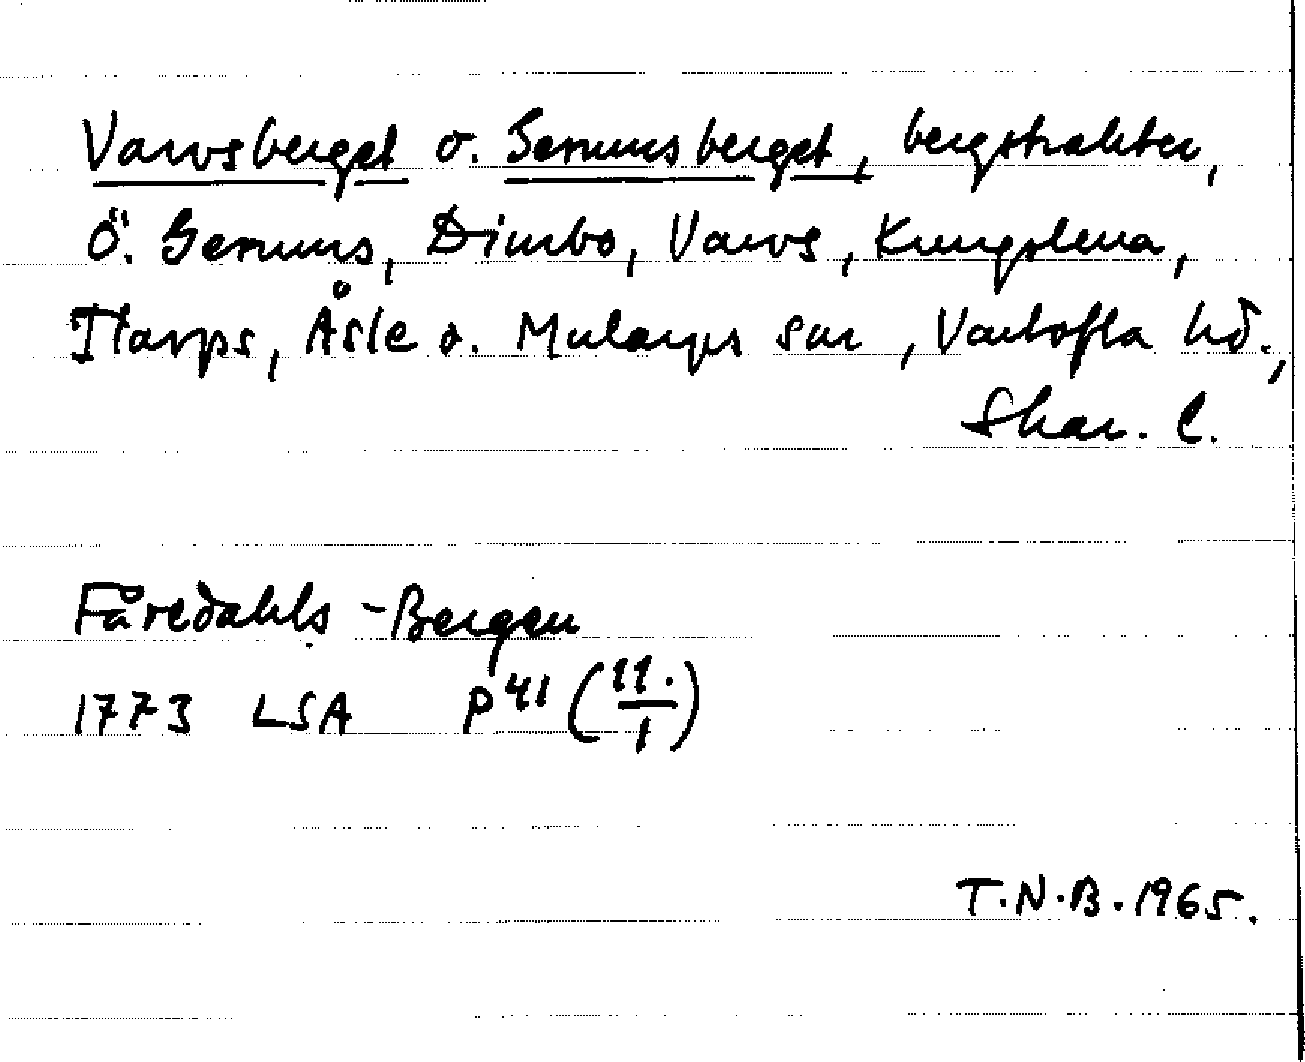 Varvsberget o. Gerumsberget, bergstrakter,
Ö. Gerums, Dimbo, Varvs, Kungslena,
Tiarps, Åsle o. Mularps snr, Vartofta hd.,
Skar. l.
Fåredahls-Bergen
1773 LSA P41 (11./1)
T.N.B. 1965.